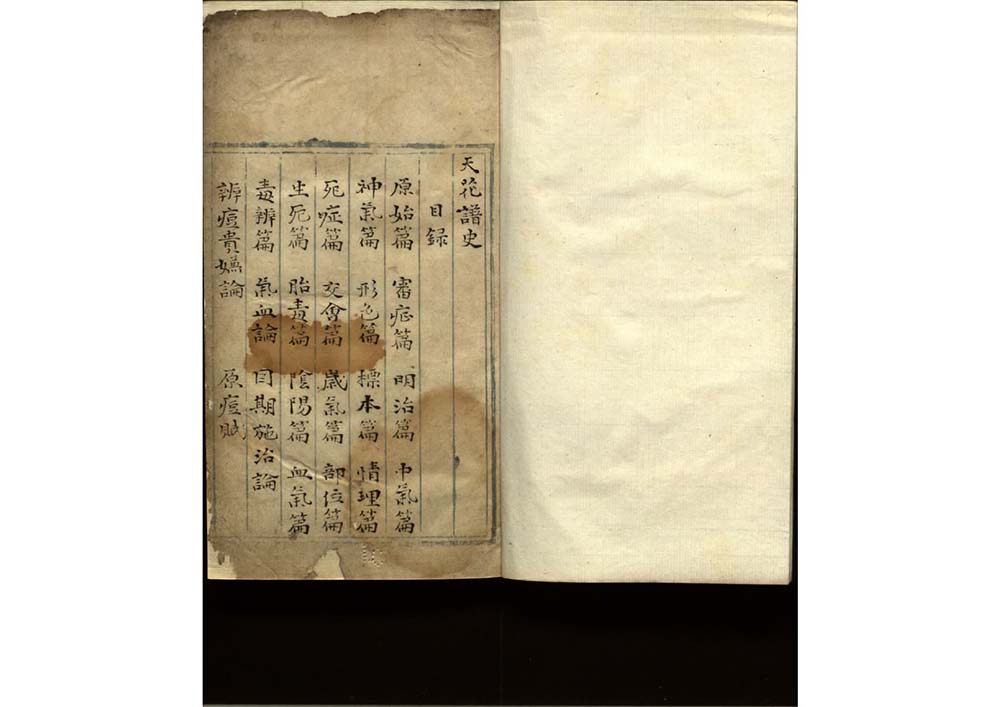 天花譜史
目録
原始篇 審症篇 明治篇 中氣篇
神氣篇 形色篇 標本篇 情理篇
死症篇 交會篇 歲氣篇 部位篇
生死篇 胎毒篇 陰陽篇 血氣篇
毒辨篇 氣血論 日期施治論
辨痘貴嫵論 原痘賦